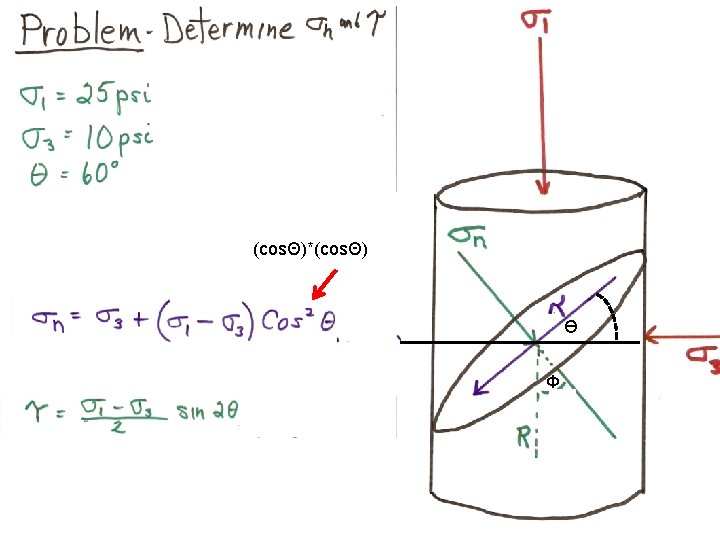 Problem - Determine σn and τ
σ1 = 25 psi
σ3 = 10 psi
θ = 60°
(cosΘ)*(cosΘ)
σn = σ3 + (σ1 - σ3) Cos² θ
τ = σ1 - σ3 / 2 sin 2θ
σ1
σn
τ
Θ
σ3
Φ
R